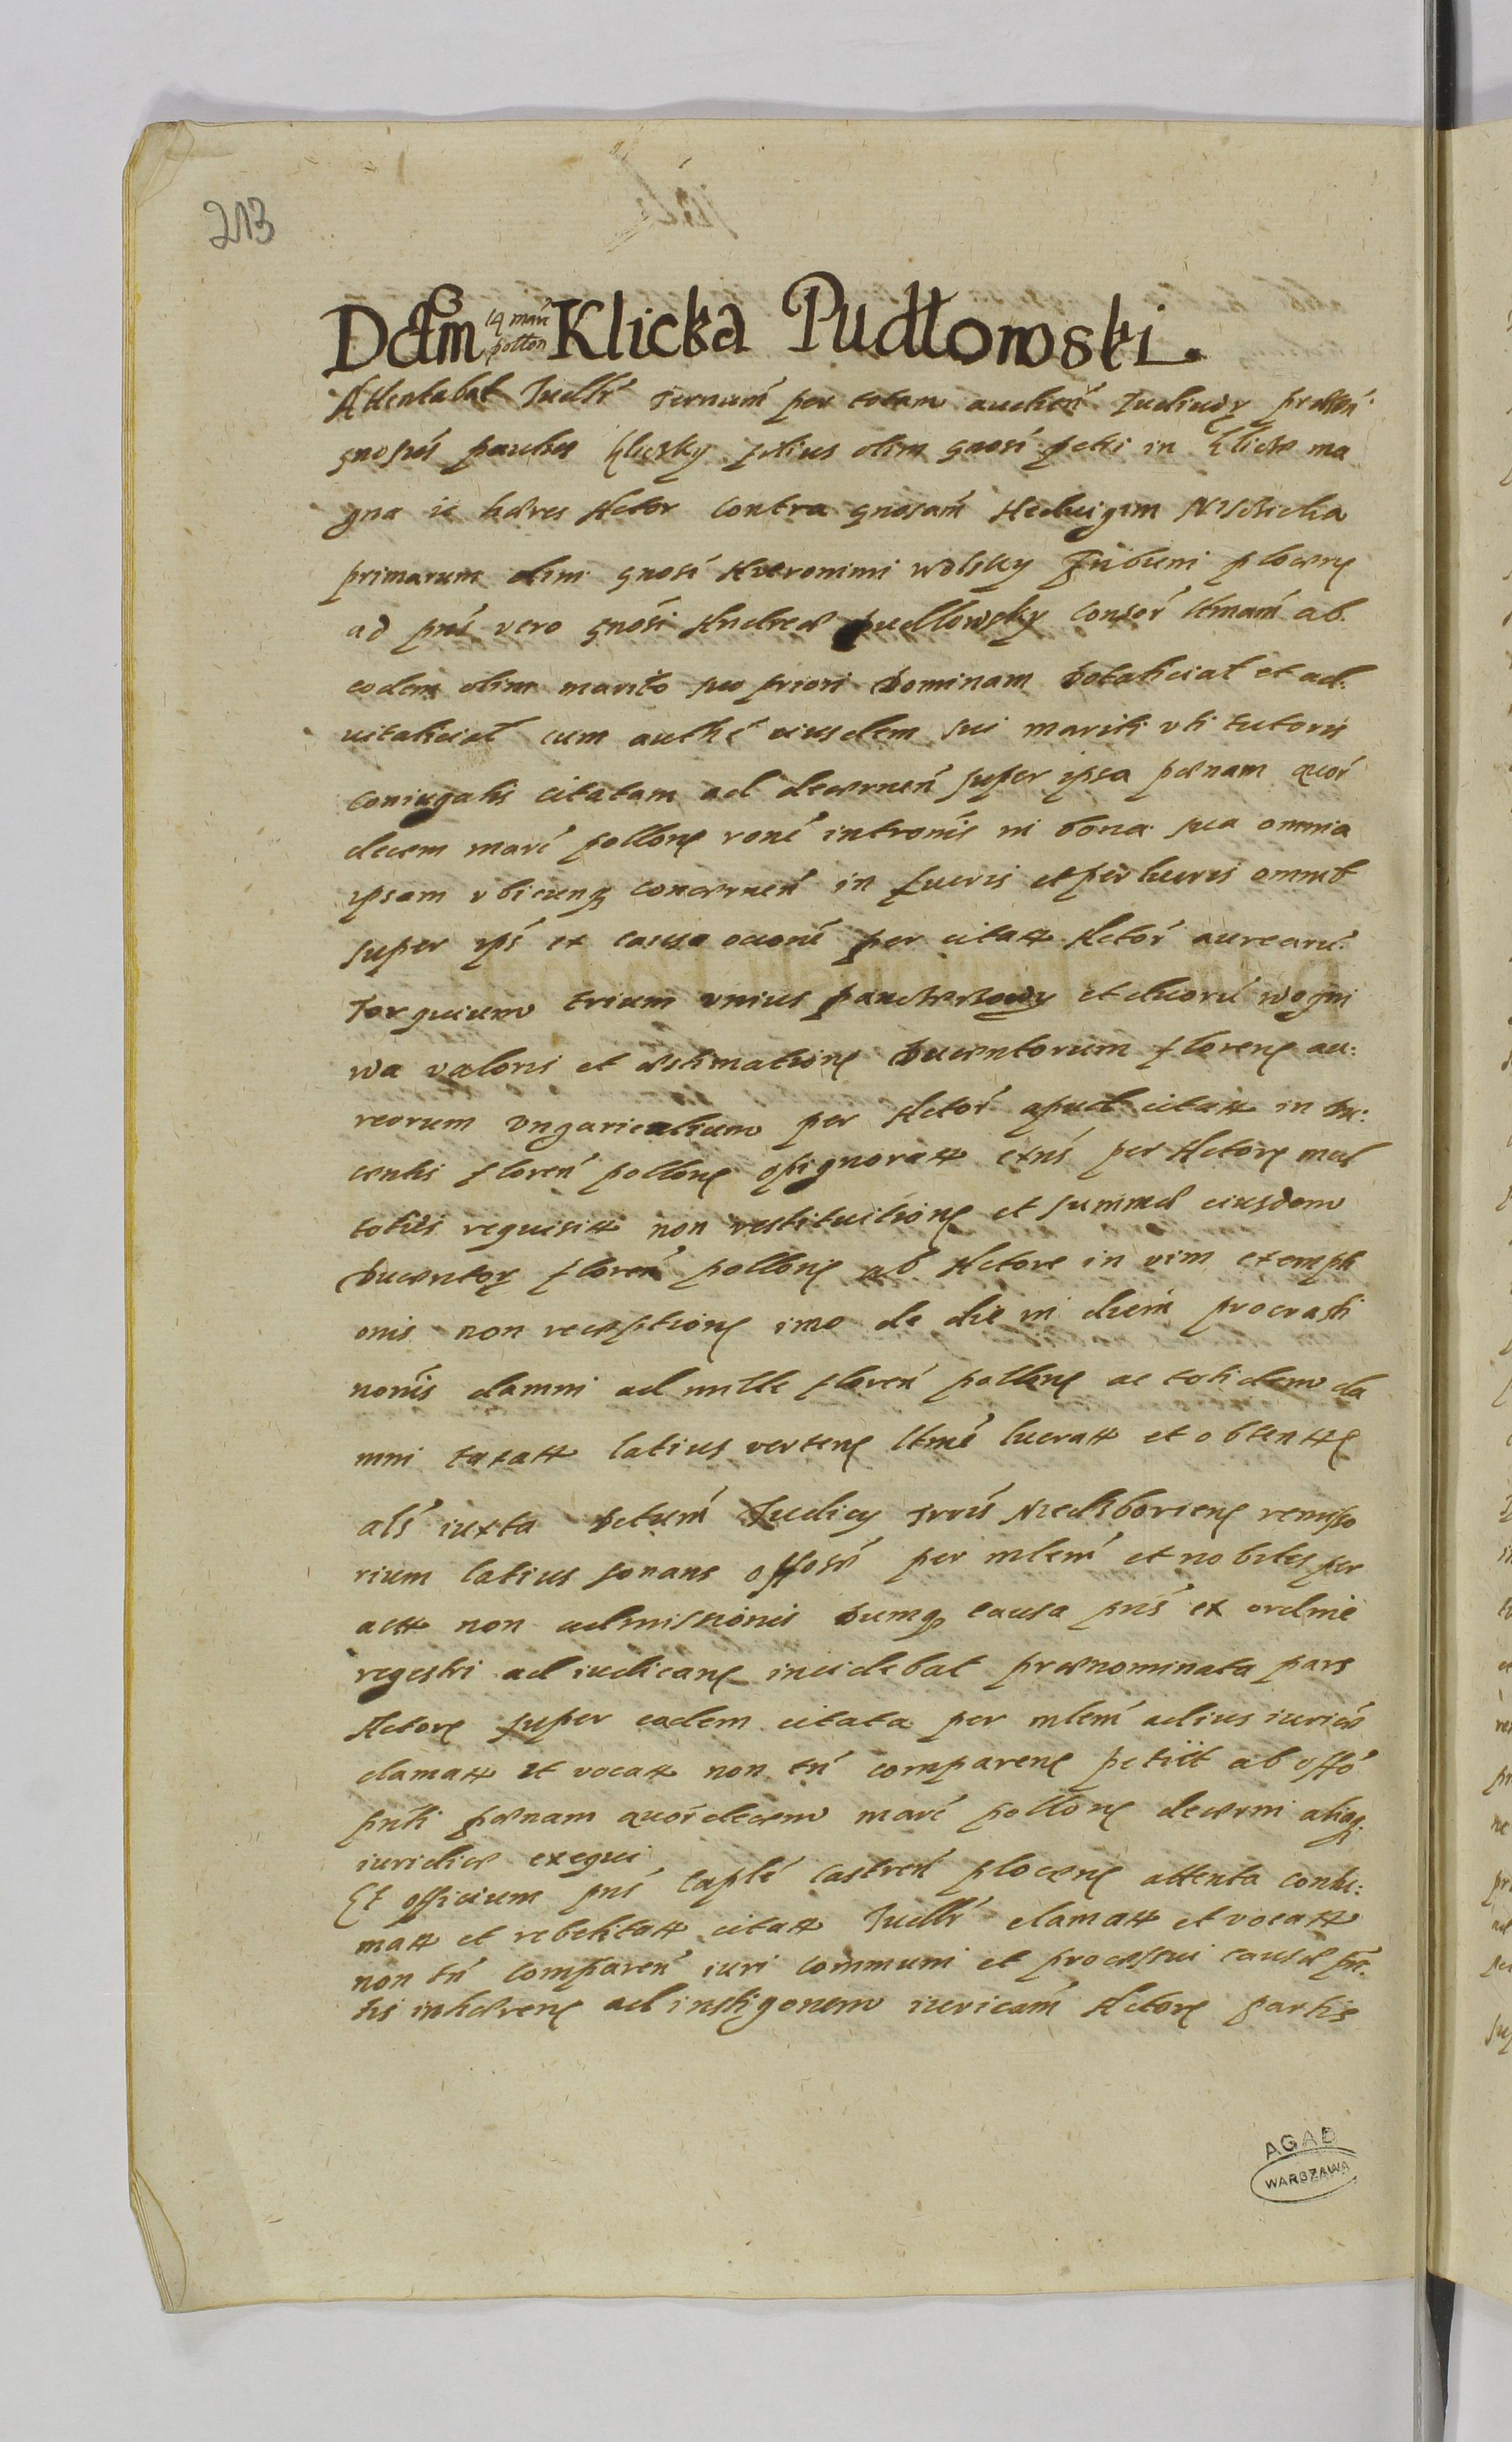 213
Dctm 14 marc pollon Klicka Pudłowski.
Attentabat Judllr Ternum per totam audien Judiciory presten
gnosus paulus Klicky filius olim gnosi petri in Klicze ma
gna ic hæres Actor contra gnosam Heduigim
primarum olim gnosi Hieronimi wolsky Tribuni plocens
ad pns vero gnosi Andreæ pudlowsky consor ltmam ab
eodem olim marito suo priori Dominam Dotaliciat et ad:
uitaliciat cum authe eiusdem sui mariti vti tutoris
coniugalis citatam ad decernen super ipsa pænam quor
decem marc pollone rone intronis in bona sua omnia
ipsam vbicunq concernen in lucris et perlucris omnib
super ips ex causa per citatt Actor aurearu
Torquium trium vnius pancerzowy et duoru wogni
wa valoris et æstimatione Ducentorum florens au:
reorum vngaricalium per Actor apud citatt in Du:
centis floren pollone opignoratt exns per Actore mul
toties requisitt non restituitione et summæ eiusdem
Ducentory floren pollone ab Actore in vim exempti
onis non receptione imo de die in diem procrasti
nonis damni ad mille floren pollone ac totidem da
mni taxatt latius vertens ltme lucratt et obtentts
als iuxta Dctum Judicy Trris Niedzboriens remisso
rium latius sonans offosæ per mlem et nobiles per
actt non admissionis Dumq causa pns ex ordine
regestri ad iudicans incidebat prænominata pars
Actore super eadem citata per mlem adius iuriæ
clamatt et vocatt non tn comparens petiit ab offo
pnti pænam quordecem marc pollone decerni aliaq
iuridice exequi
Et officium pns Caple Castren plocens attenta contu:
matt et rebelitatt citatt Judllr clamatt et vocatt
non tn comparen iuri communi et processui causæ pn
tis inhærens ad instigonem iuricam Actore partis
AGAD
WARSZAWA